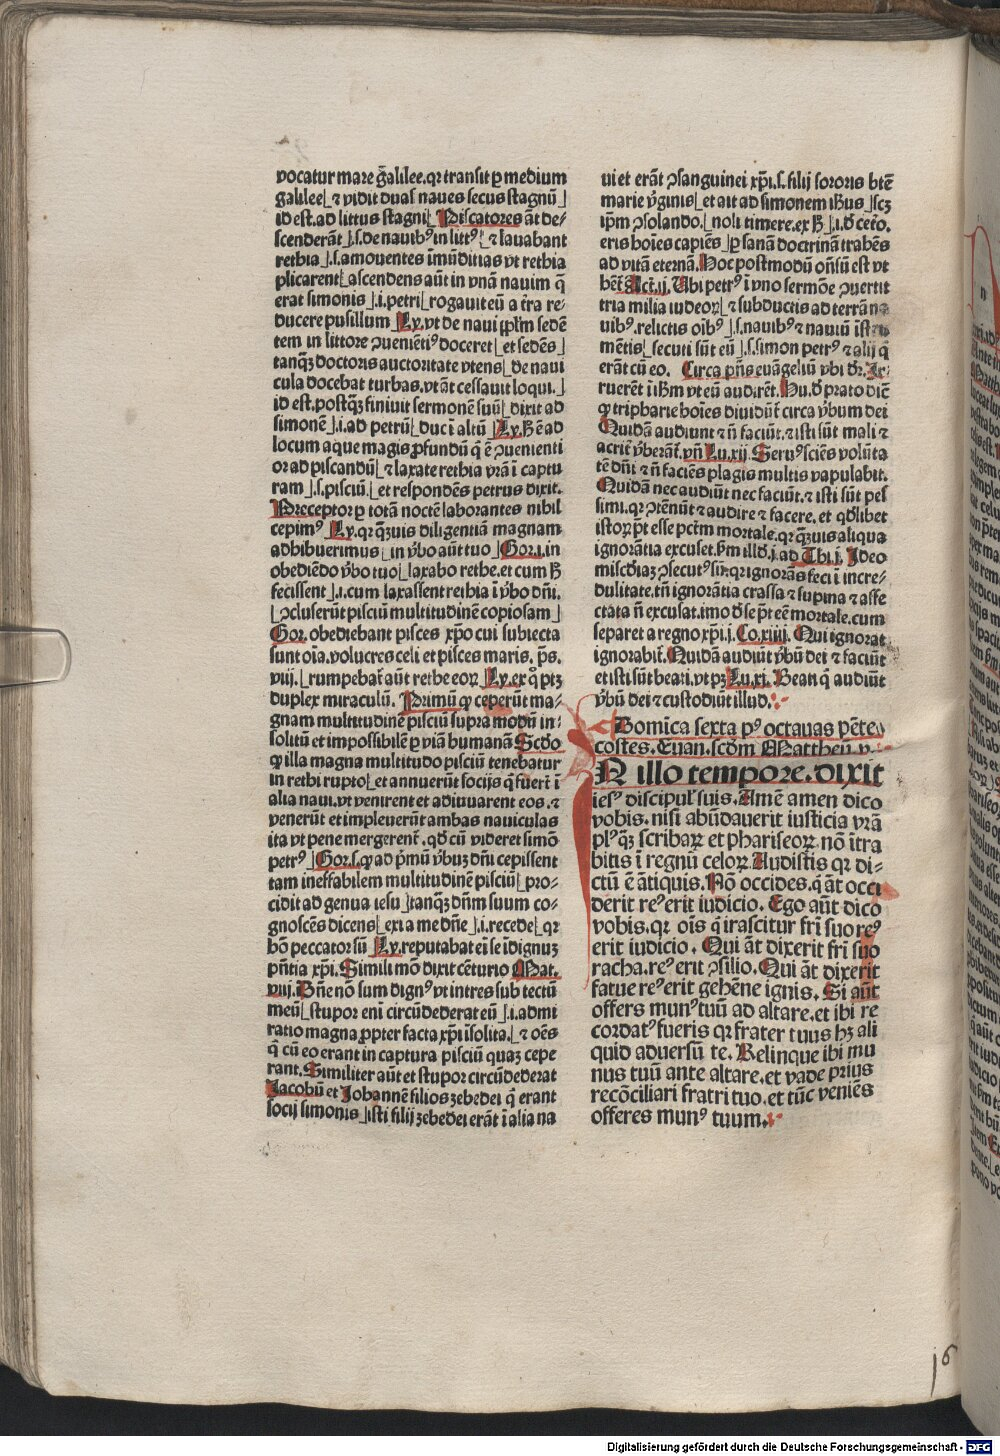 vocatur mare galilee.qr transit ꝑ medium
galilee⌊ ⁊ vidit duas naues secus stagnū⌋
id est.ad littus stagni⌊ Piscatores āt de⸗
scenderāt⌋.s.de nauibꝰ in littꝰ⌊ ⁊ lauabant
rethia⌋.s.amouentes īmūditias vt rethia
plicarent⌊ascendens aūt in vnā nauim q̄
erat simonis⌋.i.petri⌊rogauit eū a t̄ra re⸗
ducere pusillum⌊Ly.vt de naui ip̄ꝫm sedē
tem in littore ꝯueniētiꝰ doceret⌊et sedēs⌋
tanqꝫ doctoris auctoritate vtens⌊de naui
cula docebat turbas.vt āt cessauit loqui.⌋
id est.postqꝫ finiuit sermonē suū⌊dixit ad
simonē⌋.i.ad petrū⌊duc ī altū⌊Ly.ɦ ē ad
locum aque magis ꝓfundū q̄ ē ꝯuenienti
or ad piscandū⌊⁊ laxate rethia vr̄a ī captu
ram⌋.s.pisciū.⌊et respondēs petrus dixit.
Preceptor ꝑ totā noctē laborantes nihil
cepimꝰ⌊Ly.qr qꝫuis diligentiā magnam
adhibuerimus⌊in v̄bo aūt tuo⌋Gor.i.in
obediēdo v̄bo tuo⌊laxabo rethe.et cum ɦ
fecissent⌋.i.cum laxassent rethia ī v̄bo dn̄i.
⌊ꝯcluserūt pisciū multitudinē copiosam⌋
Gor.obediebant pisces xp̄o cui subiecta
sunt oīa.volucres celi et pisces maris. p̄s.
viij.⌊rumpebat̄ aūt rethe eoꝝ⌊Ly.ex q̊ ptꝫ
duplex miraculū. Primū ꝙ ceperūt ma⸗
gnam multitudinē pisciū supra modū in⸗
solitū et impossibilē ꝑ viā humanā Sc̄do
ꝙ illa magna multitudo pisciū tenebatur
in rethi rupto⌊et annuerūt socijs q̄ fuer̄t ī
alia naui.vt venirent et adiuuarent eos. ⁊
venerūt et impleuerūt ambas nauiculas
ita vt pene mergerent̄. qd̄ cū videret simō
petrꝰ⌋Gor.s.ꝙ ad p̄mū v̄buꝫ dn̄i cepissent
tam ineffabilem multitudinē pisciū⌊pro⸗
cidit ad genua iesu⌋tanqꝫ dn̄m suum co⸗
gnoscēs dicens⌊exi a me dn̄e⌋.i.recede⌊qr
hō peccator sū⌊Ly.reputabat ei se īdignuꝫ
pn̄tia xp̄i.Simili mō dixit cēturio Mat.
viij.Dn̄e nō sum dignꝰ vt intres sub tectū
meū⌊stupor eni circūdederat eū⌋.i.admi
ratio magna ꝓpter facta xp̄i īsolita.⌊⁊ oēs
q̄ cū eo erant in captura pisciū quaꝫ cepe
rant.Similiter aūt et stupor circūdederat
Jacobū et Johannē filios zebedei q̄ erant
socij simonis⌋isti filij zebedei erāt ī alia na
ui et erāt ꝯsanguinei xp̄i.s.filij sororis btē
marie v̄ginis⌊et ait ad simonem iɦus⌋scꝫ
ip̄m ꝯsolando.⌊noli timere.ex ɦ⌋.i.d̄ cet̄o.
eris hoīes capiēs⌋ꝑ sanā doctrinā trahēs
ad vitā eternā.Hoc postmodū on̄sū est vt
hēt̄ Act.ij. Ubi petrꝰ ī vno sermōe ꝯuertit
tria milia iudeoꝝ⌊⁊ subductis ad terrā na
uibꝰ.relictis oībꝰ⌋.s.nauibꝰ ⁊ nauiū īstru
mētis⌊secuti sūt eū⌋.s.simon petrꝰ ⁊ alij q̄
erāt cū eo. Circa pn̄s euāgeliū vbi dr̄. Ir⸗
ruerēt ī iɦm vt eū audirēt.Hu.d̄ prato dic̄
ꝙ tripharie hoīes diuidūt̄ circa v̄bum dei
Quidā audiunt ⁊ n̄ faciūt.⁊ isti sūt mali ⁊
acriter v̄berāt̄.vn̄ Lu.xij.Seruꝰ sciēs volūta
tē dn̄i ⁊ n̄ faciēs plagis multis vapulabit.
Quidā nec audiūt nec faciūt.⁊ isti sūt pes
simi.qr ꝯtēnūt ⁊ audire ⁊ facere. et qd̄libet
istoꝝ pt̄ esse pctm̄ mortale.qr qꝫuis aliqua
ignorātia excuset.ẜm illd̄.j.ad Thi.j. Ideo
mīscd̄iaꝫ ꝯsecutꝰ sū.qr ignorās feci ī incre⸗
dulitate.tn̄ ignorātia crassa ⁊ supina ⁊ affe
ctata n̄ excusat.imo d̄ se pt̄ eē mortale.cum
separet a regno xp̄i.j.Co.xiiij. Qui ignorat
ignorabit̄.Quidā audiūt v̄bū dei ⁊ faciūt
et isti sūt beati.vt pꝫ Lu.xi. Beati q̄ audiūt
v̄bū dei ⁊ custodiūt illud.
Domīca sexta pꝰ octauas pēte
costes.Euan.scd̄m Mattheū v.
N illo tempore.dixit
iesꝰ discipul̄ suis.Amē amen dico
vobis.nisi abūdauerit iusticia vr̄a
plꝰ qꝫ scribaꝝ et phariseoꝝ nō ītra
bitis ī regnū celoꝝ Audistis qr di⸗
ctū ē ātiquis.Nō occides.q̄ āt occi
derit reꝰ erit iudicio. Ego aūt dico
vobis.qr oīs q̄ irascitur fri̅ suo reꝰ
erit iudicio. Qui āt dixerit fri̅ suo
racha.reꝰ erit ꝯsilio.Qui āt dixerit
fatue reꝰ erit gehēne ignis. Si aūt
offers munꝰ tuū ad altare.et ibi re
cordatꝰ fueris qr frater tuus hꝫ ali
quid aduersū te. Relinque ibi mu
nus tuū ante altare.et vade prius
recōciliari fratri tuo.et tūc veniēs
offeres munꝰ tuum.
16
Digitalisierung gefördert durch die Deutsche Forschungsgemeinschaft - DFG